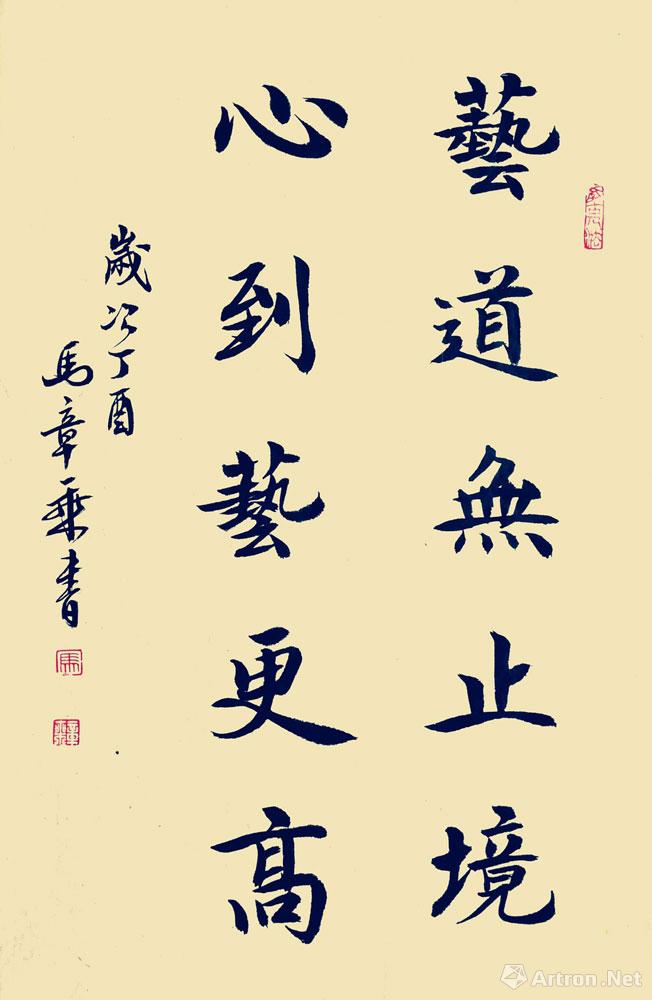 藝道無止境
心到藝更高
歲次丁酉
馬章乘書
馬
Artron.Net